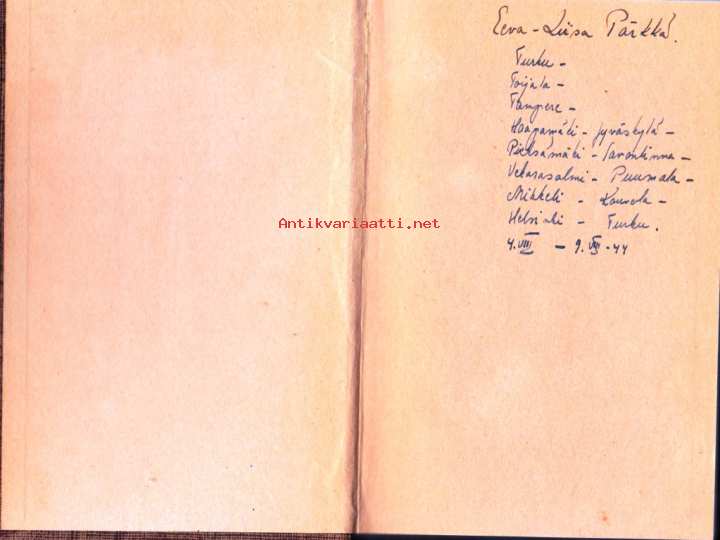 Eeva-Liisa Pärkkä.
Turku -
Toijala -
Tampere -
Haapamäki - Jyväskylä -
Pieksämäki - Savonlinna -
Vekarasalmi - Puumala -
Mikkeli - Kouvola -
Antikvariaatti.net
Helsinki - Turku.
4.VIII - 9.VIII.44